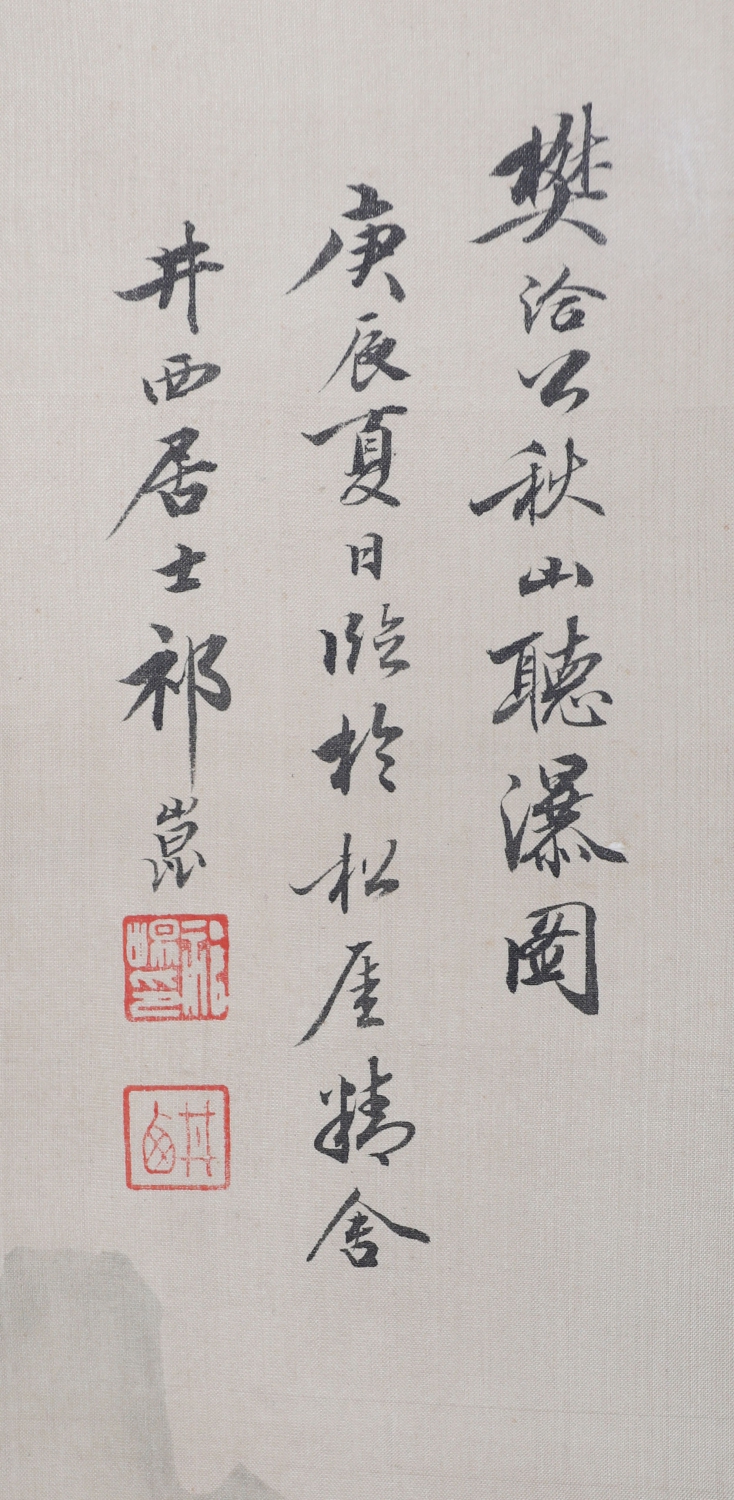 樊洽公秋山聽瀑圖
庚辰夏日臨於松厓精舍
井西居士祁崑
祁崑印
井西